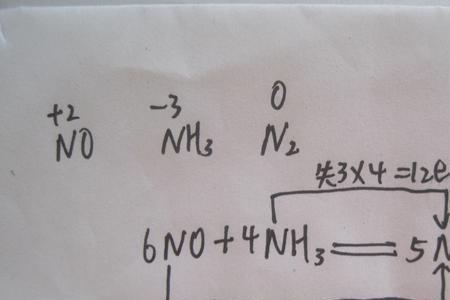 +2 -3 0
NO NH₃ N₂
失3×4=12e
6NO+4NH₃══5N